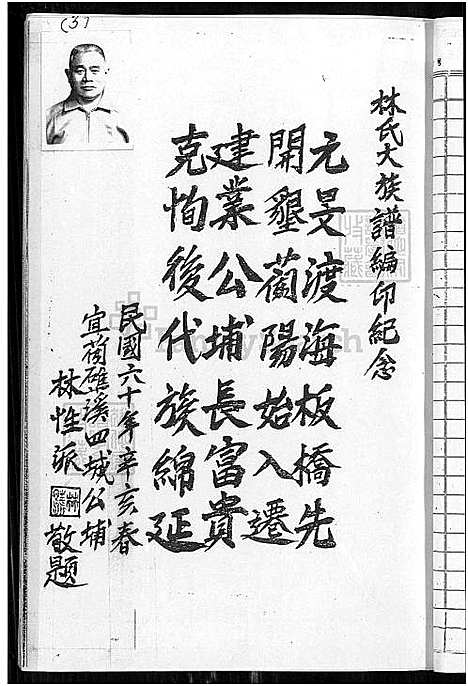 (3)
林氏大族譜編印紀念
元旻渡海板橋先
開墾蘭陽始入遷
建業公埔長富貴
克恂後代族綿延
民國六十年辛亥春
宜蘭礁溪四城公埔
林性派 敬題